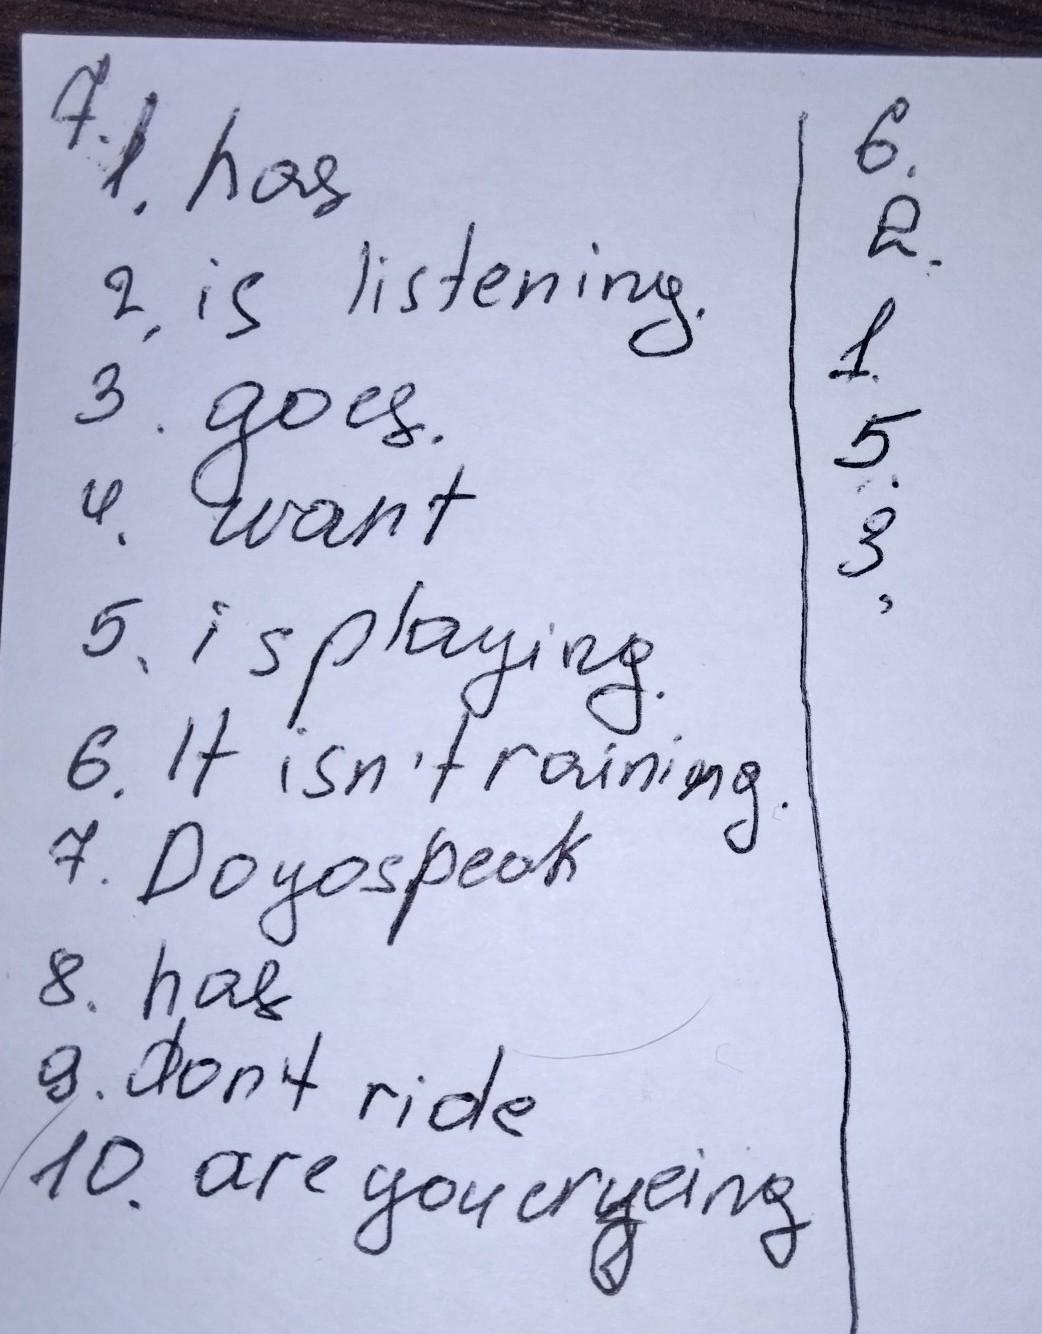 7.
1. has
2, is listening.
3. goes.
4. want
5. is playing.
6. It isn't raining.
7. Doyospeak
8. has
9. dont ride
10. are you cryeing
6.
2.
1.
5.
3.